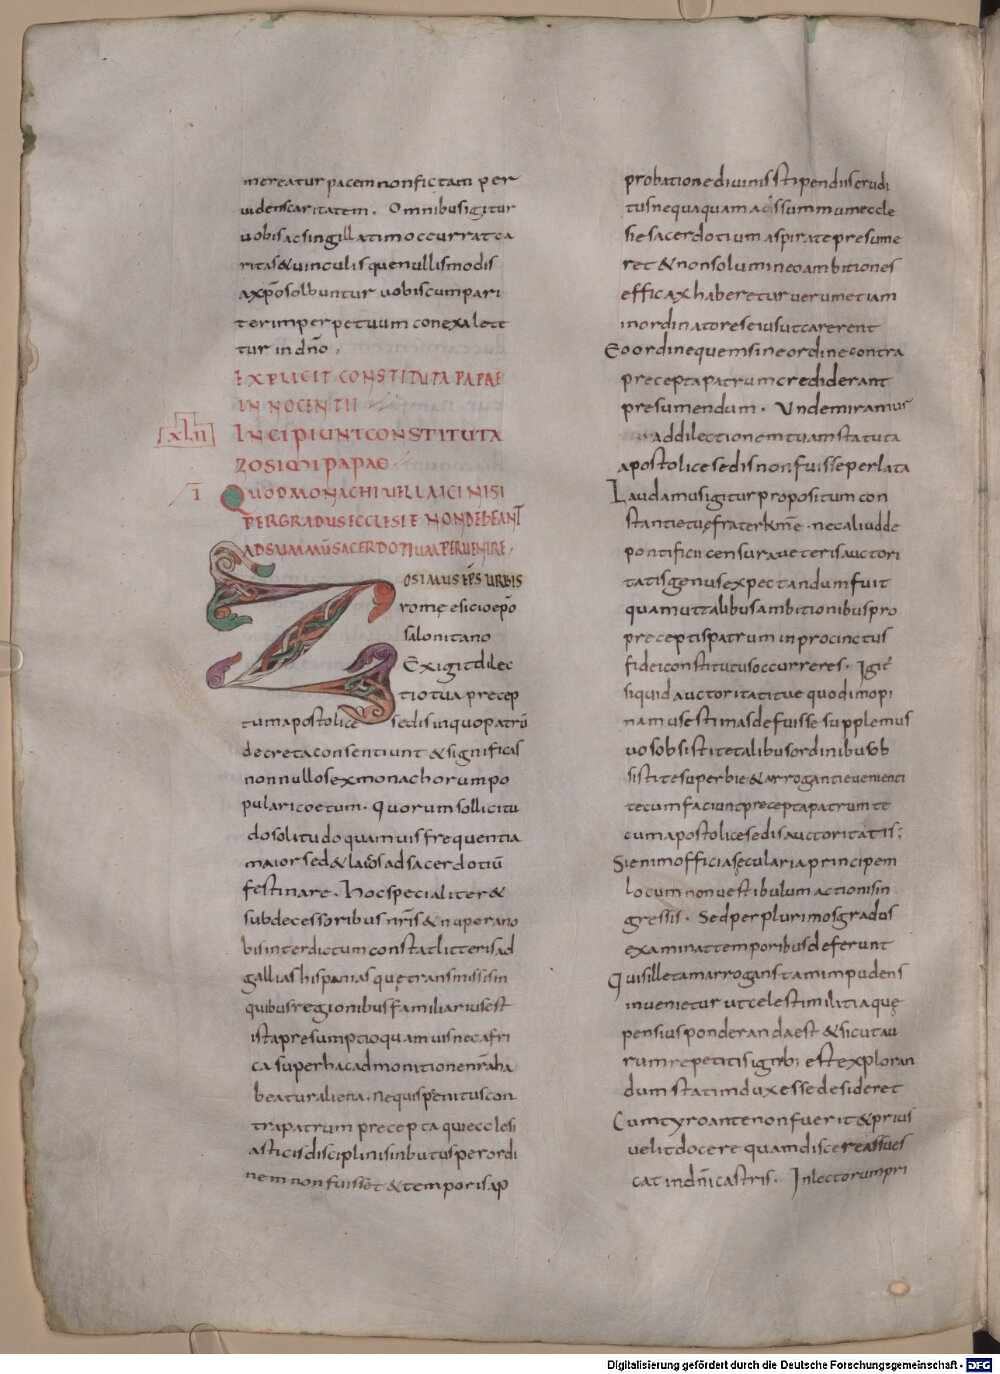 mereatur pacem non fictam per
uidens caritatem. Omnibus igitur
uobis ac singillatim occurrat ca
ritas & uinculis quę nullis modis
a xp̄o soluuntur uobiscum pari
ter in perpetuum conexa lete
tur in dn̄o;
EXPLICIT CONSTITUTA PAPAE
INNOCENTII
XLII INCIPIUNT CONSTITUTA
ZOSIMI PAPAE
I QUOD MONACHI UEL LAICI NISI
PER GRADUS ECCLESIE NON DEBEANT
AD SUMMŪ SACERDOTIUM PERUENIRE,
ZOSIMUS EPS URBIS
romę esicio ep̄o
salonitano
Exigit dilec
tio tua precep
tum apostolice sedis in quo patrū
decreta consentiunt & significas
nonnullos ex monachorum po
pulari coetum. quorum sollicitu
do solitudo quamuis frequentia
maior sed & laicos ad sacerdotiū
festinare. Hoc specialiter &
sub decessoribus nr̄is & nuper a no
bis interdictum constat litteris ad
gallias hispanias quę transmissis in
quibus regionibus familiarius est
ista presumptio quamuis nec afri
ca super hac admonitione nr̄a ha
beatur aliena. ne quis penitus con
tra patrum precepta qui ecclesi
asticis disciplinis inbutus per ordi
nem non fuisset & temporis ap
probatione diuinis stipendiis erudi
tus nequaquam ad summum eccle
sie sacerdotium aspirate presume
ret & non solum in eo ambitiones
efficax haberetur uerum etiam
in ordinatores eius ut carerent
Eo ordine quem sine ordine contra
precepta patrum crediderant
presumendum. Unde miramur
ad dilectionem tuam statuta
apostolice sedis non fuisse perlata
Laudamus igitur propositum con
stantie tuę frater kme. nec aliud de
pontificii censura ueteris auctori
tatis genus expectandum fuit
quam ut talibus ambitionibus pro
preceptis patrum in procinctus
fidei constitutus occurreres. Igit̄
si quid auctoritati tue quod inopi
namus estimas defuisse supplemus
uos obsistite talibus ordinibus ob
sistite superbie & arrogantie uenienti
tecum faciunt precepta patrum te
cum apostolice sedis auctoritatis;
Si enim officia sęcularia principem
locum non uestibulum actionis in
gressis. Sed per plurimos gradus
examinat temporibus deferunt
Quis ille tam arrogans tam impudens
inuenietur ut celesti militia quę
pensius ponderanda est & sicut au
rum repetitis ignib; est exploran
dum statim dux esse desideret
Cum tyro ante non fuerit & prius
uelit docere quam discere assues
cat in dn̄i castris. In lectorum pri
Digitalisierung gefördert durch die Deutsche Forschungsgemeinschaft - DFG